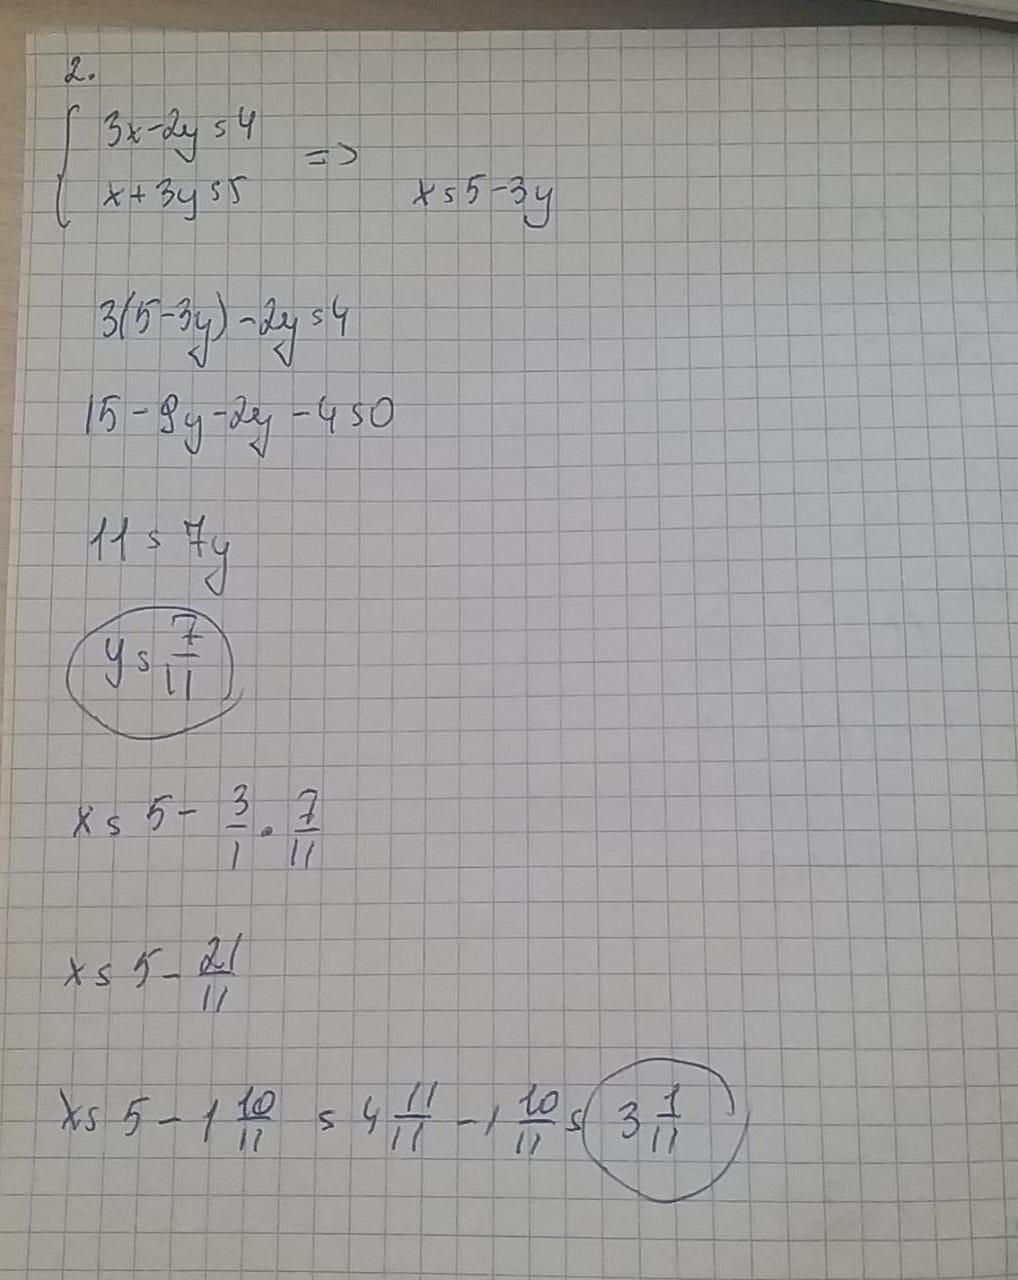 2.
{ 3x-2y=4
x+3y=5 => x=5-3y
3(5-3y)-2y=4
15-9y-2y-4=0
11=7y
y=7/11
x=5-3/1·7/11
x=5-21/11
x=5-1 10/11=4 11/11-1 10/11=3 1/11